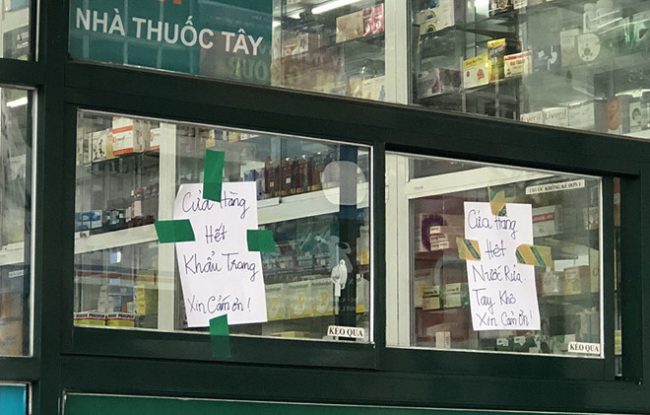 NHÀ THUỐC TÂY
Cửa Hàng
Hết
Khẩu Trang
Xin Cảm ơn!
KÉO QUA
THUỐC KHÔNG KÊ ĐƠN 1
Cửa Hàng
Hết
Nước Rửa
Tay Khô
Xin Cảm ơn!
KÉO QUA